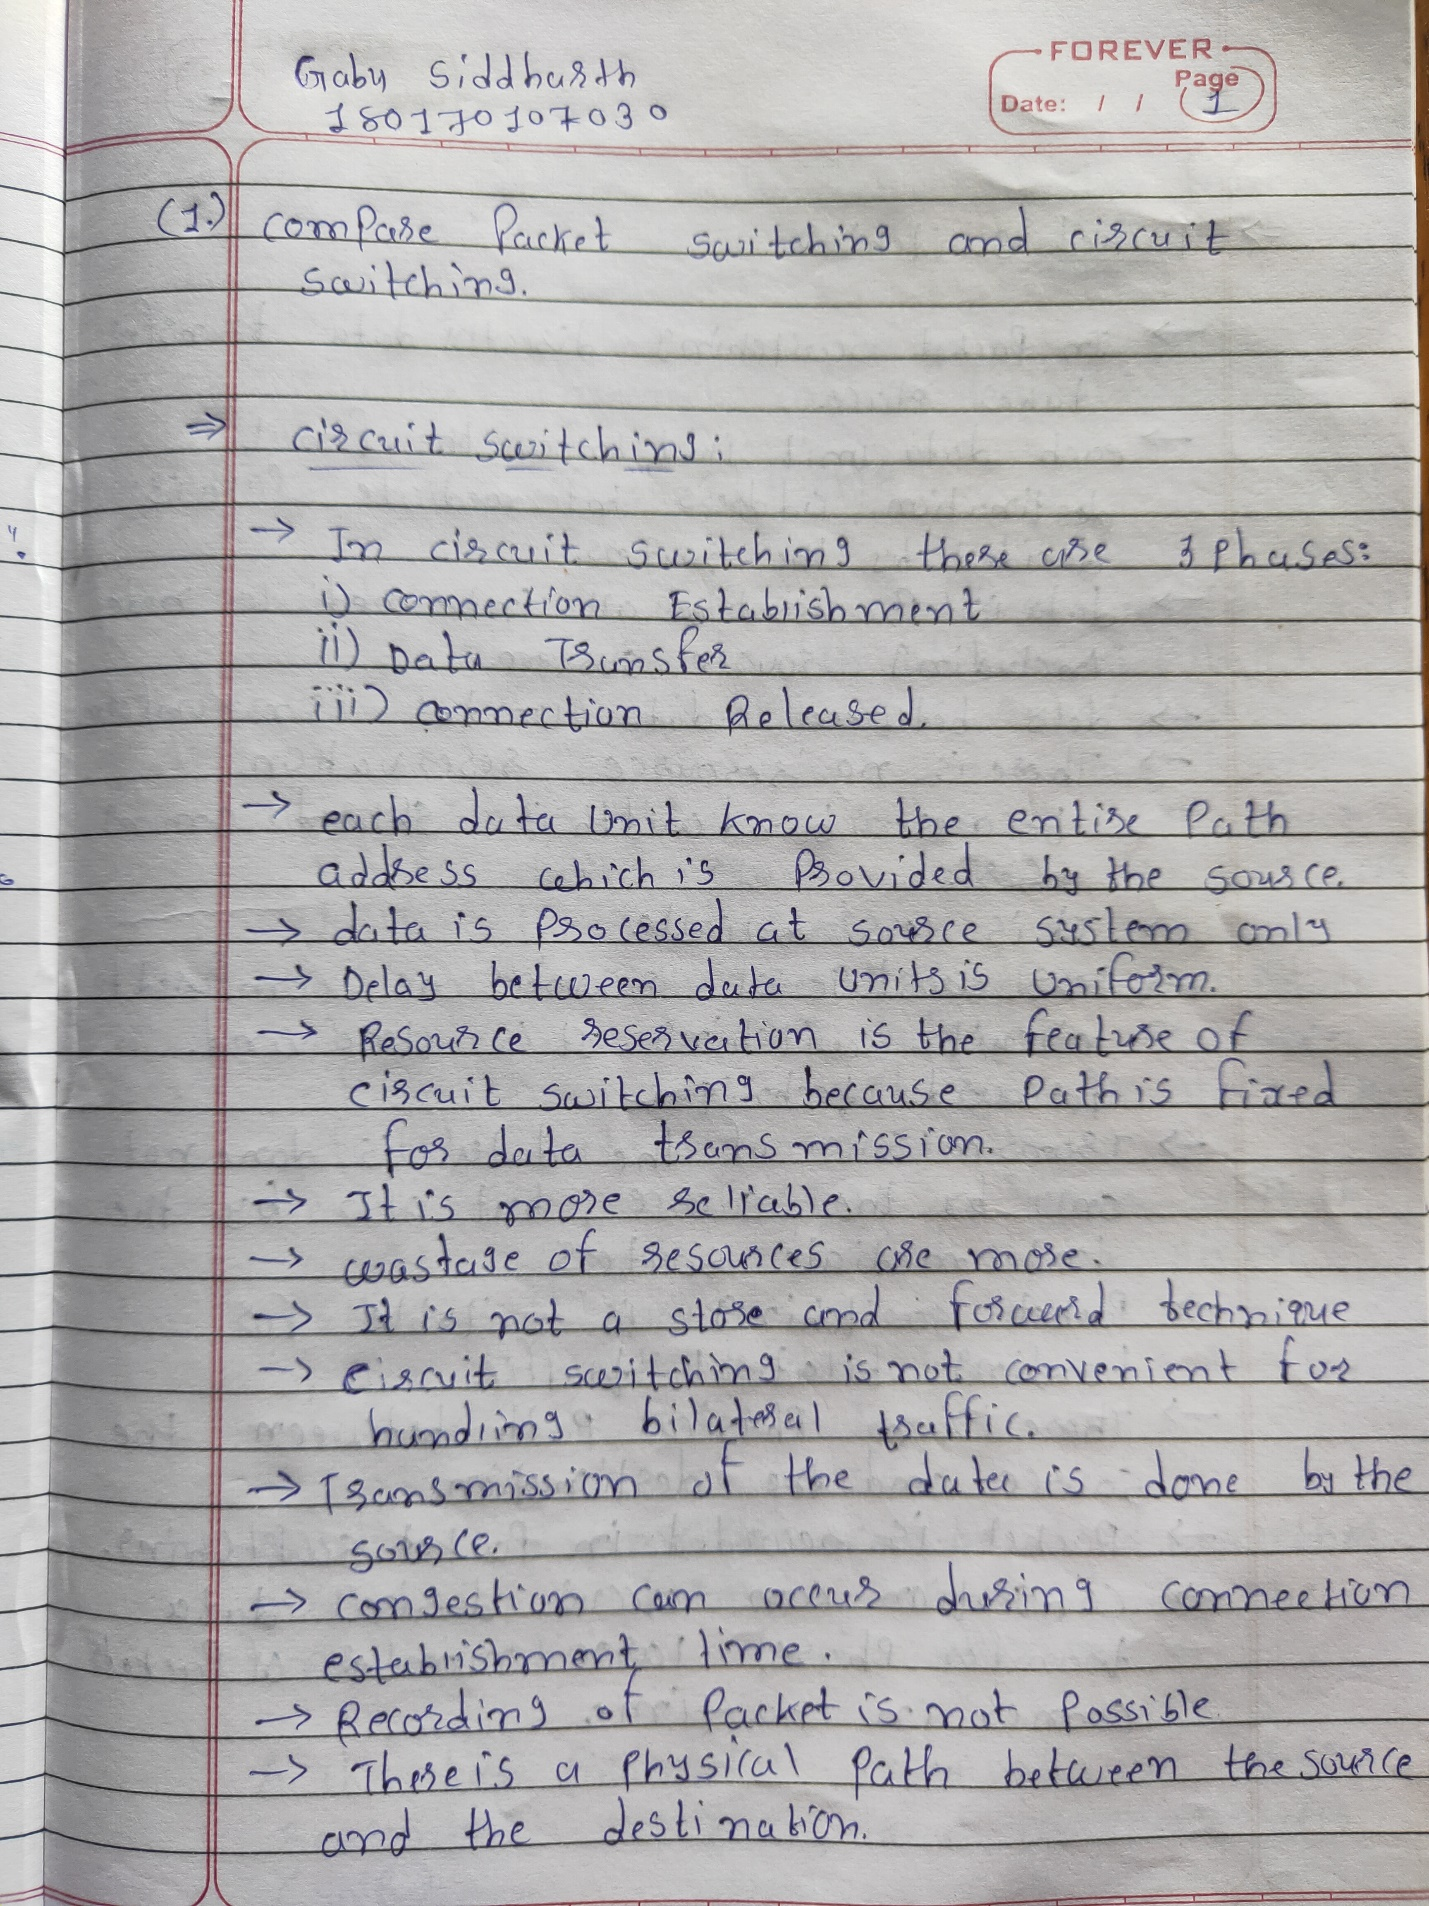 Gabu Siddharth
180170107030
FOREVER
Page
Date: / / 1
(1.) compare Packet switching and circuit
switching.
⇒ circuit switching:
→ In circuit switching there are 3 phases:
i) connection Establishment
ii) Data Transfer
iii) connection Released.
→ each data Unit know the entire Path
address which is Provided by the source.
→ data is Processed at source system only
→ Delay between data units is uniform.
→ Resource reservation is the feature of
circuit switching because Path is fixed
for data transmission.
→ It is more reliable.
→ wastage of resources are more.
→ It is not a store and forward technique
→ circuit switching is not convenient for
handling bilateral traffic.
→ Transmission of the data is done by the
source.
→ congestion can occur during connection
establishment time.
→ Recording of Packet is not Possible
→ There is a Physical Path between the source
and the destination.